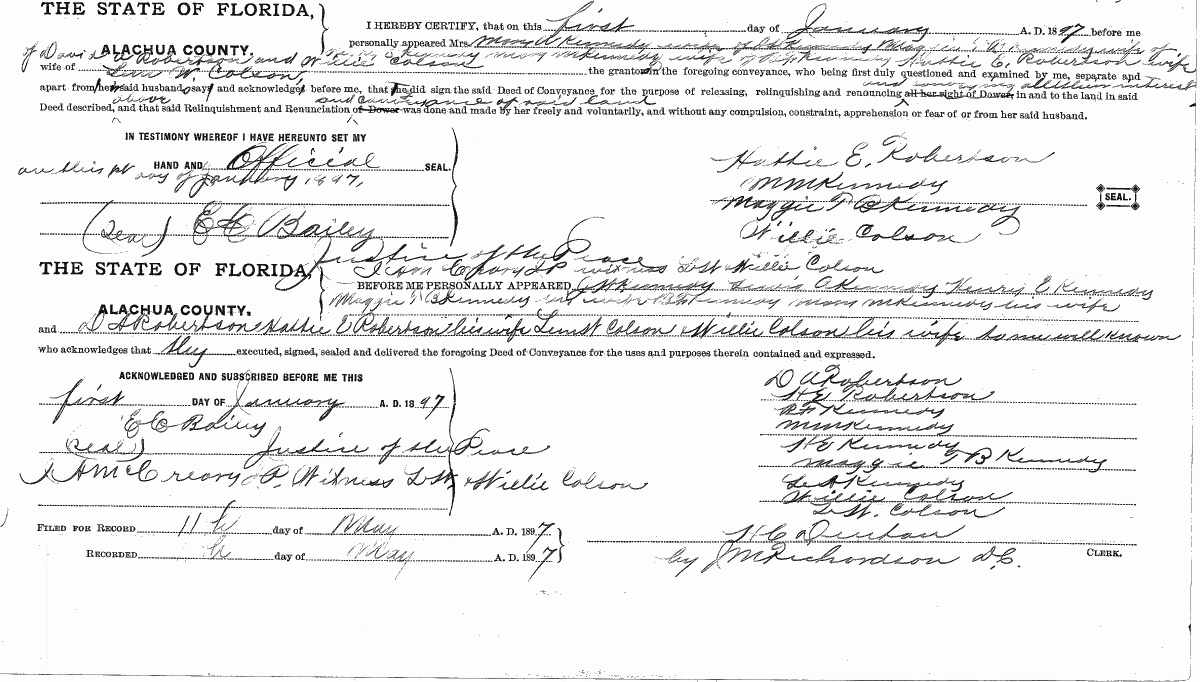 THE STATE OF FLORIDA,
ALACHUA COUNTY.
I HEREBY CERTIFY, that on this first day of January A. D. 1897 before me
personally appeared Mrs. Kennedy wife of
of David A Robertson and Willie Colson Hattie E. Robertson wife
wife of W. Colson, the grantors in the foregoing conveyance, who being first duly questioned and examined by me, separate and
apart from her said husband, says and acknowledges before me, that he did sign the said Deed of Conveyance for the purpose of releasing, relinquishing and renouncing all her right of Dower, in and to the land in said
above and conveyance of said land
Deed described, and that said Relinquishment and Renunciation of Dower was done and made by her freely and voluntarily, and without any compulsion, constraint, apprehension or fear of or from her said husband.
IN TESTIMONY WHEREOF I HAVE HEREUNTO SET MY
HAND AND Official SEAL.
on this 1st day of January 1897,
(Seal) E C Bailey
Justice of the Peace
Hattie E. Robertson
M M Kennedy
Maggie T B Kennedy
Willie Colson
SEAL.
THE STATE OF FLORIDA,
ALACHUA COUNTY.
witness L W Willie Colson
BEFORE ME PERSONALLY APPEARED Lewis A Kennedy Henry E Kennedy
Maggie T B Kennedy his wife B F Kennedy Mary M Kennedy his wife
and D A Robertson Hattie E Robertson his wife Colson & Willie Colson his wife to me well known
who acknowledges that they executed, signed, sealed and delivered the foregoing Deed of Conveyance for the uses and purposes therein contained and expressed.
ACKNOWLEDGED AND SUBSCRIBED BEFORE ME THIS
first DAY OF January A. D. 1897
E C Bailey
(Seal) Justice of the Peace
J A McCreary J P. Witness L W. & Willie Colson
D A Robertson
H E Robertson
B F Kennedy
M M Kennedy
H E Kennedy
Maggie T B Kennedy
L A Kennedy
Willie Colson
L W. Colson
FILED FOR RECORD 11th day of May A. D. 1897
RECORDED day of May A. D. 1897
H C Denton
by J M Richardson D.C. CLERK.